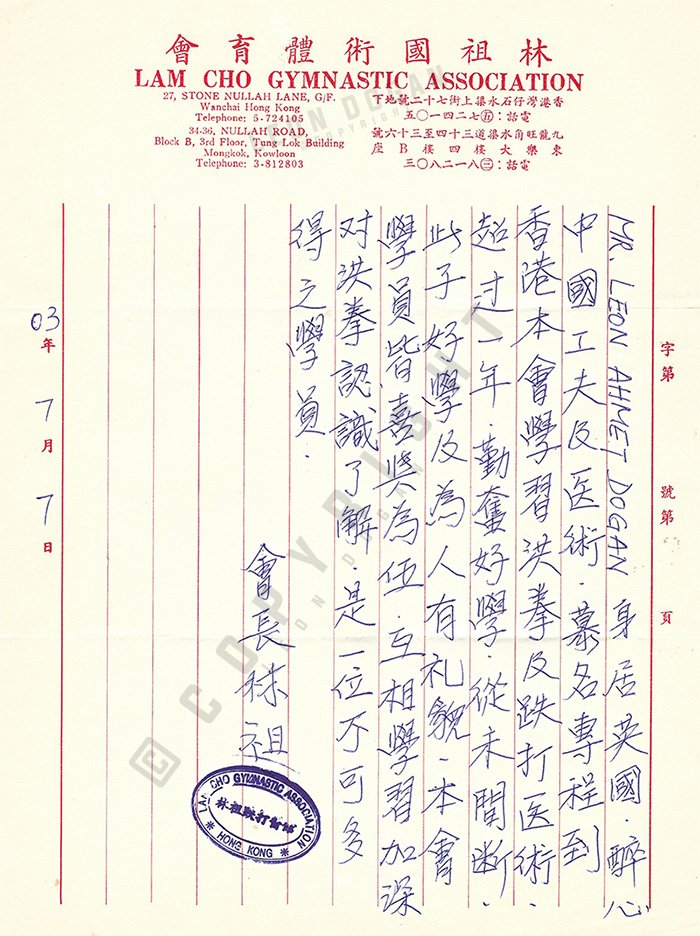 林祖國術體育會
LAM CHO GYMNASTIC ASSOCIATION
27, STONE NULLAH LANE, G/F.
Wanchai Hong Kong
Telephone: 5-724105
34-36, NULLAH ROAD,
Block B, 3rd Floor, Tung Lok Building
Mongkok, Kowloon
Telephone: 3-812803
香港灣仔石水渠上街七十二號地下
電話：㊄七二四一〇五
九龍旺角水渠道三十四至三十六號
東樂大樓四樓B座
電話：㊂八一二八〇三
字第
號第
頁
MR. LEON AHMET DOGAN 身居英國．醉心
中國工夫及医術．慕名專程到
香港本會學習洪拳及跌打医術．
超过一年．勤奮好學．從未間断．
此子好學及為人有礼貌．本會
學員皆喜與為伍．互相學習加深
对洪拳認識了解．是一位不可多
得之學員．
會長林祖
LAM CHO GYMNASTIC ASSOCIATION
林祖跌打醫館
* HONG KONG *
03年7月7日
© COPYRIGHT
LEON DOGAN